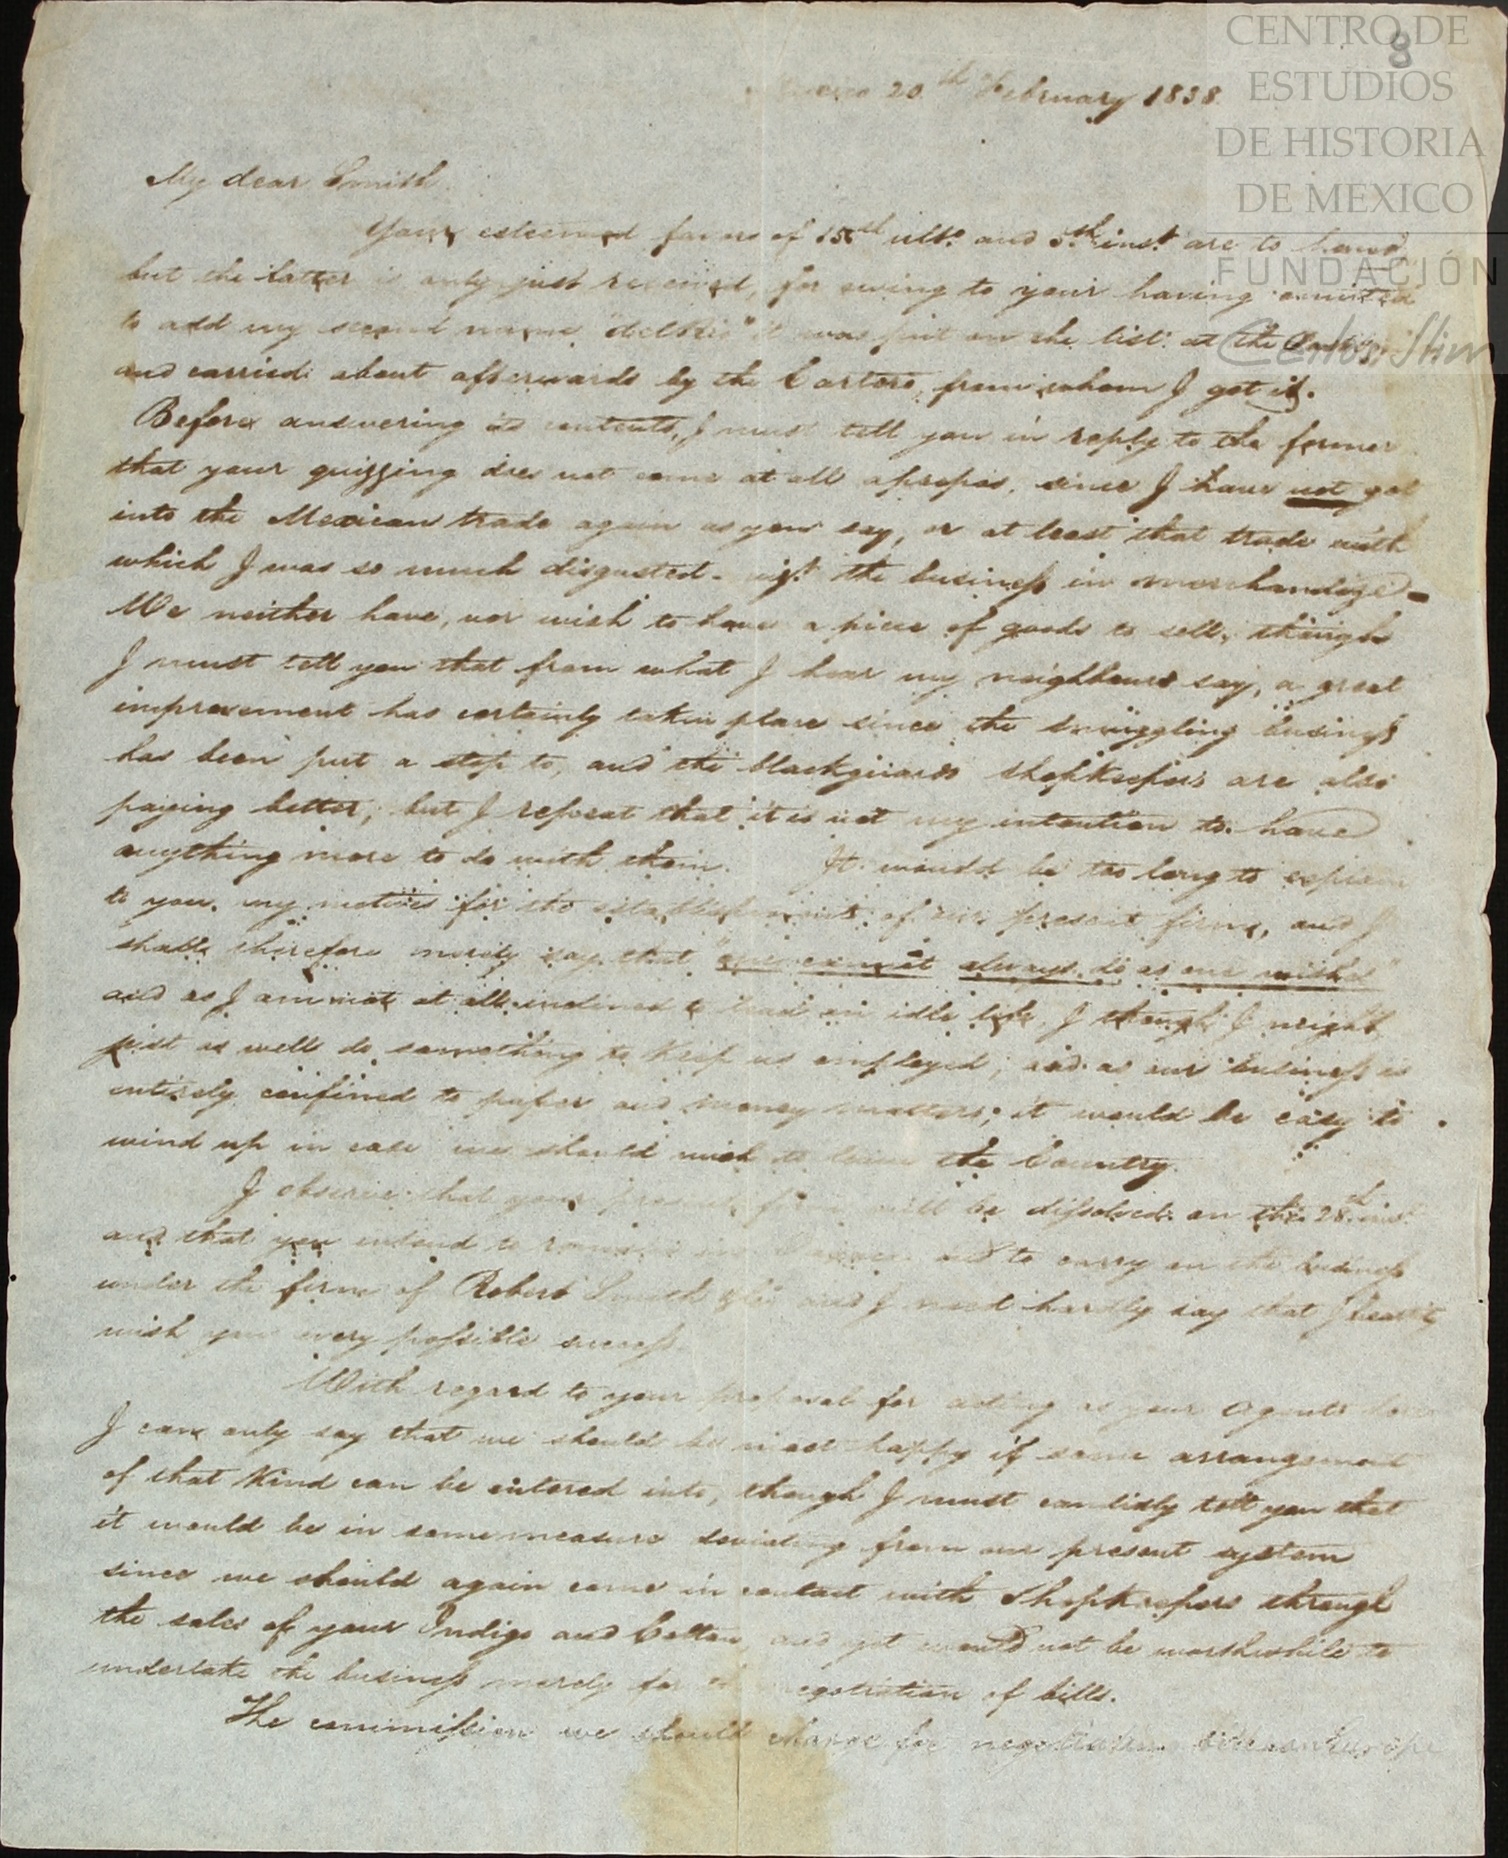 CENTRO DE
ESTUDIOS
DE HISTORIA
DE MEXICO
FUNDACIÓN
Carlos Slim
8
Mexico 20th February 1838.
My dear Smith
Your esteemed favors of 15th ulto. and 5th inst are to hand
but the latter is only just received, for owing to your having omitted
to add my second name "del Rio" it was put on the list at the
and carried about afterwards by the Carters, from whom I got it.
Before answering its contents, I must tell you in reply to the former
that your quizzing does not come at all apropos, since I have not got
into the Mexican trade again as you say, or at least that trade with
which I was so much disgusted - vizt the business in merchandize -
We neither have, nor wish to have a piece of goods to sell, though
I must tell you that from what I hear my neighbours say, a great
improvement has certainly taken place since the smuggling business
has been put a stop to, and the blackguards shopkeepers are also
paying better; but I repeat that it is not my intention to have
anything more to do with them. It would be too long to explain
to you my motives for the establishment of our present firm, and I
shall therefore merely say that "one cannot always do as one wishes"
and as I am not at all inclined to lead an idle life, I though I might
just as well do something to keep us employed; and as our business is
entirely confined to paper and money matters; it would be easy to
wind up in case we should wish to leave the Country.
I observe that your present firm will be dissolved on the 28th inst
and that you intend to remain in and to carry on the business
under the firm of Robert Smith & Co. and I need hardly say that I heartily
wish you every possible success.
With regard to your proposal for acting as your Agents here
I can only say that we should be most happy if some arrangement
of that kind can be entered into, though I must candidly tell you that
it would be in some measure deviating from our present system
since we should again come in contact with Shopkeepers through
the sales of your Indigo and Cotton, and yet would not be worthwhile to
undertake the business merely for the negotiation of bills.
The commission we should charge for negotiating bills on Europe